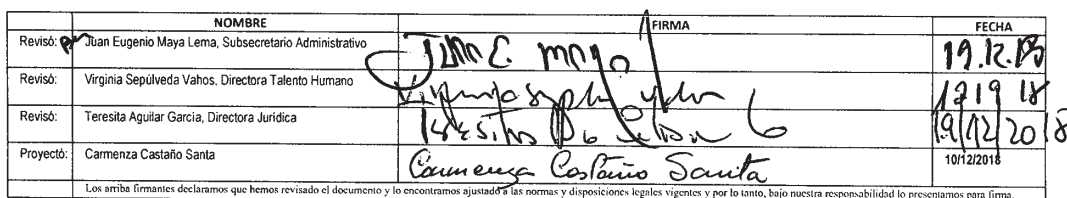 NOMBRE FIRMA FECHA
Revisó: Juan Eugenio Maya Lema, Subsecretario Administrativo Juan E. Maya 19.12.18
Revisó: Virginia Sepúlveda Vahos, Directora Talento Humano
Revisó: Teresita Aguilar García, Directora Jurídica 19/12/2018
Proyectó: Carmenza Castaño Santa Carmenza Castaño Santa 10/12/2018
Los arriba firmantes declaramos que hemos revisado el documento y lo encontramos ajustado a las normas y disposiciones legales vigentes y por lo tanto, bajo nuestra responsabilidad lo presentamos para firma.